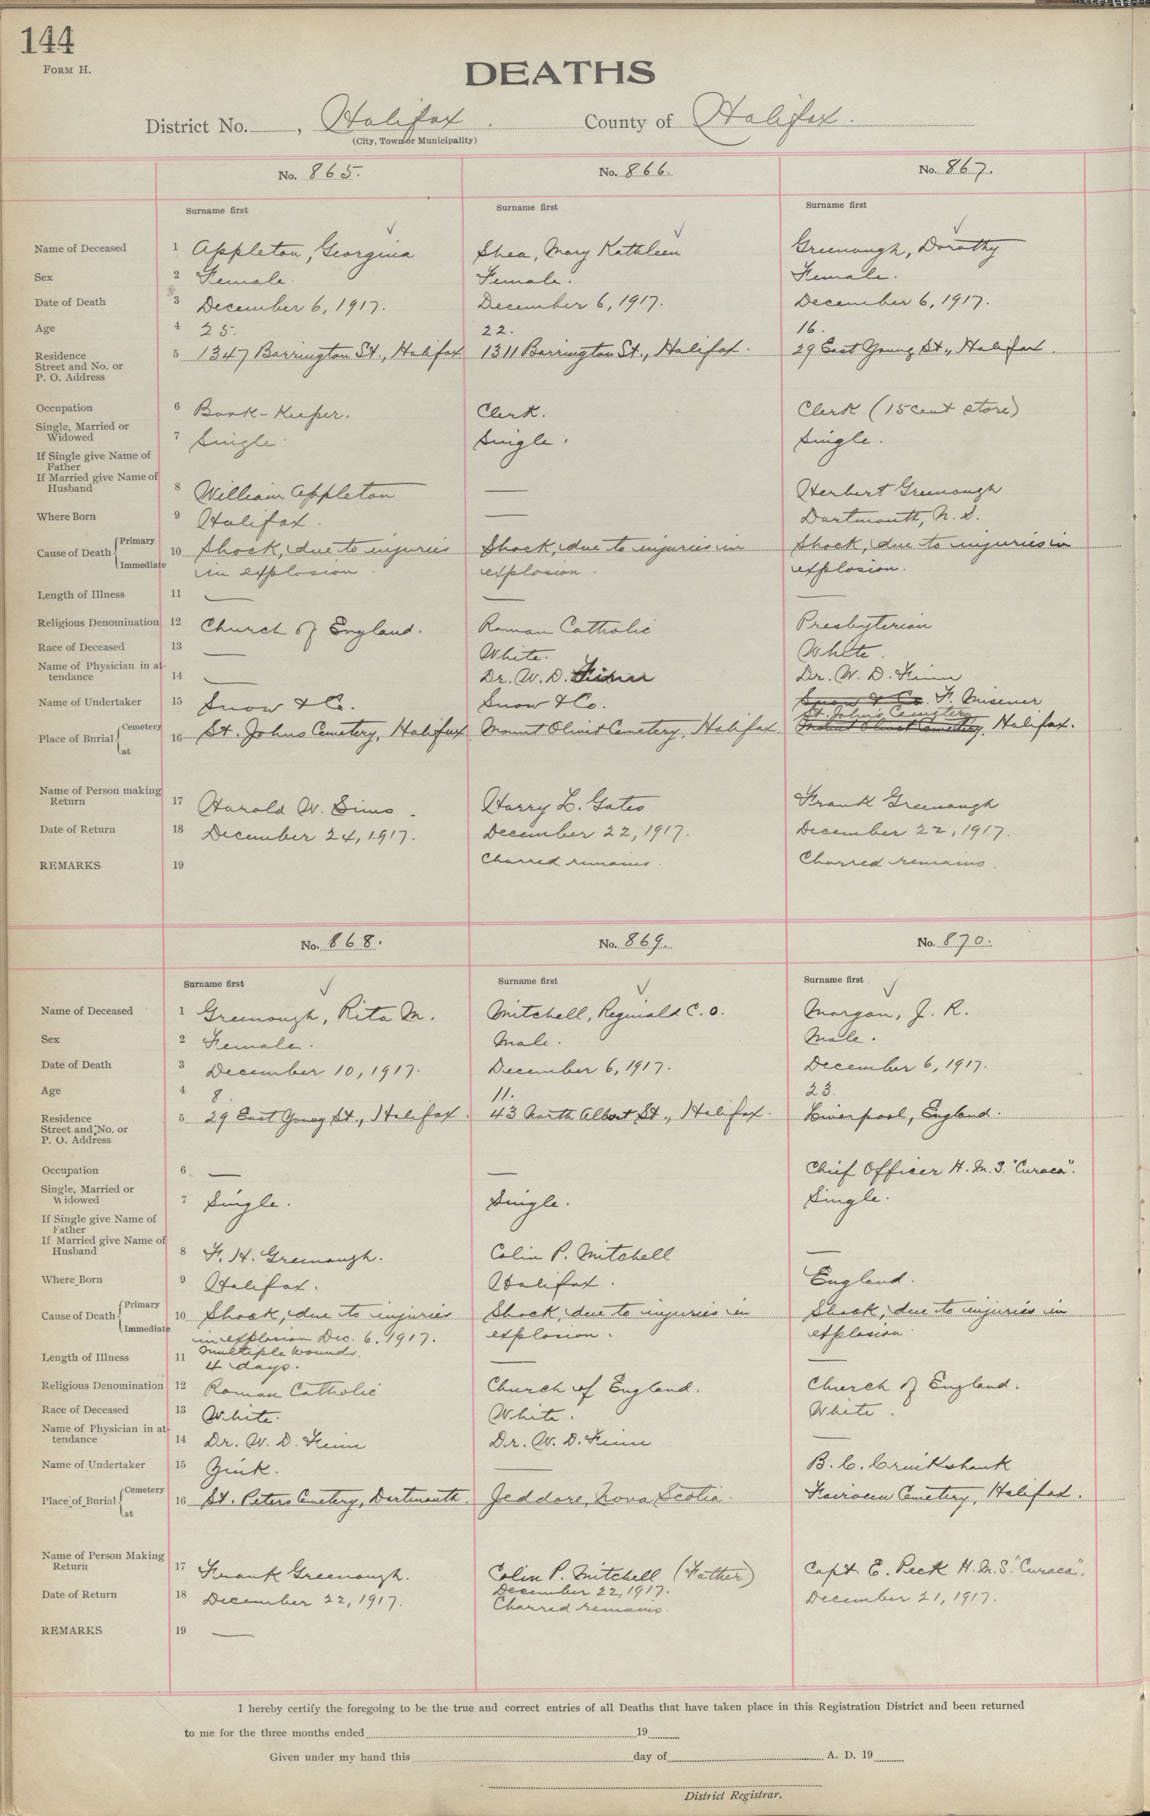 144
FORM H.
DEATHS
District No. , Halifax. County of Halifax.
(City, Town or Municipality)
No. 865.
Surname first
Name of Deceased 1 Appleton, Georgina
Sex 2 Female.
Date of Death 3 December 6, 1917.
Age 4 25.
Residence Street and No. or P. O. Address 5 1347 Barrington St., Halifax
Occupation 6 Book-Keeper.
Single, Married or Widowed 7 Single.
If Single give Name of Father
If Married give Name of Husband 8 William Appleton
Where Born 9 Halifax.
Cause of Death { Primary Immediate 10 Shock, due to injuries
in explosion.
Length of Illness 11 —
Religious Denomination 12 Church of England.
Race of Deceased 13 —
Name of Physician in attendance 14 —
Name of Undertaker 15 Snow & Co.
Place of Burial { Cemetery at 16 St. Johns Cemetery, Halifax
Name of Person making Return 17 Harold W. Sims.
Date of Return 18 December 24, 1917.
REMARKS 19
No. 866.
Surname first
Shea, Mary Kathleen
Female.
December 6, 1917.
22.
1311 Barrington St., Halifax.
Clerk.
Single.
—
—
Shock, due to injuries in
explosion.
—
Roman Catholic
White.
Dr. W. D. Finn
Snow & Co.
Mount Olivet Cemetery, Halifax.
Harry L. Gates
December 22, 1917.
Charred remains.
No. 867.
Surname first
Greenough, Dorothy
Female.
December 6, 1917.
16.
29 East Young St., Halifax.
Clerk (15 cent store)
Single.
Herbert Greenough
Dartmouth, N. S.
Shock, due to injuries in
explosion.
—
Presbyterian
White.
Dr. W. D. Finn
Snow & Co. F. Misener
St. John's Cemetery
Mount Olivet Cemetery, Halifax.
Frank Greenough
December 22, 1917.
Charred remains.
No. 868.
Surname first
Name of Deceased 1 Greenough, Rita M.
Sex 2 Female.
Date of Death 3 December 10, 1917.
Age 4 8.
Residence Street and No. or P. O. Address 5 29 East Young St., Halifax.
Occupation 6 —
Single, Married or Widowed 7 Single.
If Single give Name of Father
If Married give Name of Husband 8 F. H. Greenough.
Where Born 9 Halifax.
Cause of Death { Primary Immediate 10 Shock, due to injuries
in explosion Dec. 6. 1917.
multiple wounds.
Length of Illness 11 4 days.
Religious Denomination 12 Roman Catholic
Race of Deceased 13 White.
Name of Physician in attendance 14 Dr. W. D. Finn
Name of Undertaker 15 Zink.
Place of Burial { Cemetery at 16 St. Peters Cemetery, Dartmouth.
Name of Person Making Return 17 Frank Greenough.
Date of Return 18 December 22, 1917.
REMARKS 19 —
No. 869.
Surname first
Mitchell, Reginald C. O.
Male.
December 6, 1917.
11.
43 North Albert St., Halifax.
—
Single.
Colin P. Mitchell
Halifax.
Shock, due to injuries in
explosion.
—
Church of England.
White.
Dr. W. D. Finn
—
Jeddore, Nova Scotia.
Colin P. Mitchell (Father)
December 22, 1917.
Charred remains.
No. 870.
Surname first
Morgan, J. R.
Male.
December 6, 1917.
23.
Liverpool, England.
Chief Officer H. M. S. "Curaca".
Single.
—
England.
Shock, due to injuries in
explosion.
—
Church of England.
White.
—
B. C. Cruikshank
Fairview Cemetery, Halifax.
Capt. E. Peck H. M. S. "Curaca".
December 21, 1917.
I hereby certify the foregoing to be the true and correct entries of all Deaths that have taken place in this Registration District and been returned
to me for the three months ended 19
Given under my hand this day of A. D. 19
District Registrar.